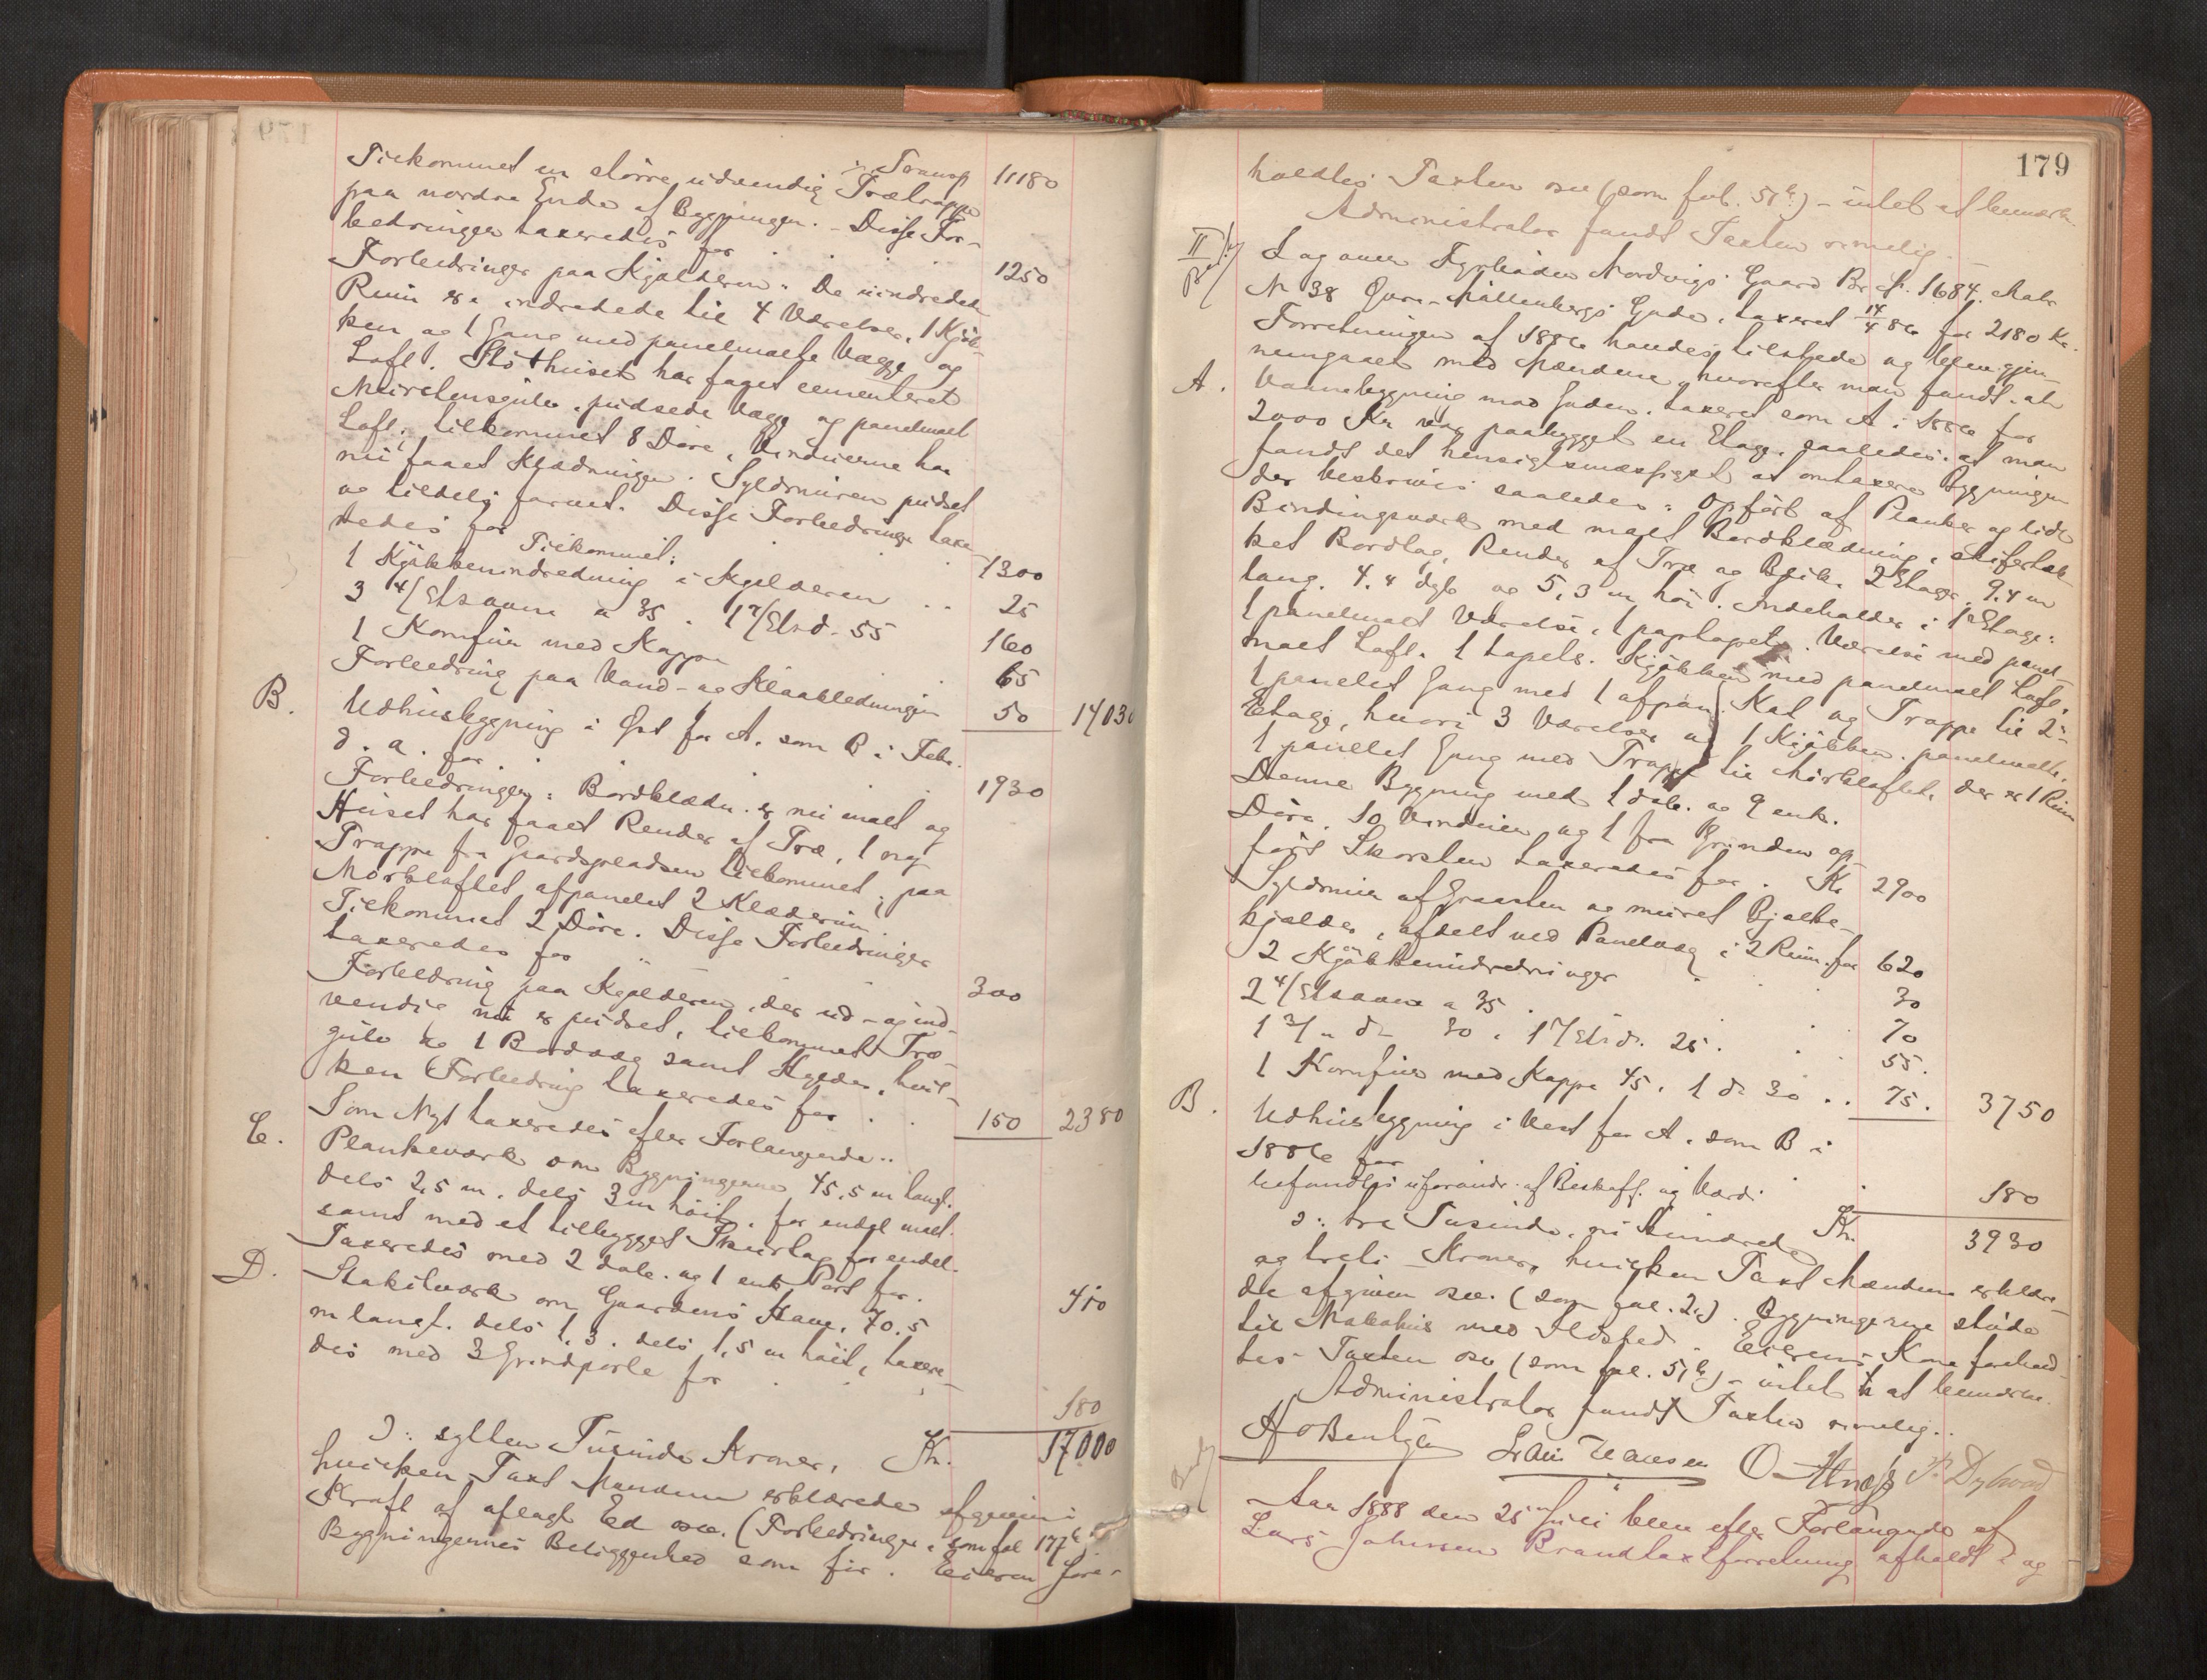 Transp 11180
Tilkommet en större udvendig Trætrappe
paa nordre Ende af Bygningen. - Disse For-
bedringer taxeredes for 1250
Forbedringer paa Kjælderen: De uindredede
Rum er indredede til 4 Værelser, 1 Kjök-
ken og 1 Gang med panelmalte Vægge og
Loft. har faaet cementeret
Murstensgulv, pudsede Vægge og panelmalt
Loft, tilkommet 8 Döre, Vinduerne har
nu faaet Klædninger. Syldmuren pudset
og tildels farvet. Disse Forbedringer taxe-
redes for 1300
Tilkommet:
1 Kjökkenindredning i Kjelderen 25
3 4/Etsovne a 35. 1 7/Et. d. 55 160
1 Komfur med Kappe 65
Forbedring paa Vand- og Kloakledningen 50 14030
B. Udhusbygning i Öst for A. som B i Febr.
d. a. for 1930
Forbedringer: Bordklædn. er nu malt og
Huset har faaet Render af Træ, 1 ny
Trappe fra Gaardspladsen tilkommet, paa
Mörkloftet afpanelet 2 Klæderum.
Tilkommet 2 Döre. Disse Forbedringer
taxeredes for 300
Forbedring paa Kjelderen, der ud- og ind-
vendig nu er pudset, tilkommet Træ-
gulv og 1 Bordvæg samt Hylder, hvil-
ken Forbedring taxeredes for 150 2380
Som Nyt taxeredes efter Forlangende:
C. Plankeværk om Bygningerne 45.5 m langt.
dels 2,5 m. dels 3 m höit, for endel malt.
samt med et tilbygget Skurtag for endel.
Taxeredes med 2 dob. og 1 enk Port for 410
D. Stakitværk om Gaardens Have, 70.5
m langt. dels 1,3. dels 1,5 m höit, taxere-
des med 3 Grindporte for 180
Kr. 17000
ɔ: sytten Tusinde Kroner,
hvilken Taxt Mændene erklærede afgiven i
Kraft af aflagt Ed osv. (Forbedringer, som fol 177
Bygningernes Beliggenhed som för. Eieren fore-
179
holdtes Taxten osv (som fol. 51b) - intet at bemærke
Administrator fandt Taxten rimelig.
II Laganer Nordvigs Gaard Br. N. 1684. Matr
N 38 Övre-Möllenbergs Gade, taxeret 14/4 86 for 2180 Kr.
Forretningen af 1886 havdes tilstede og blev gjen-
nemgaaet med Mændene, hvorefter man fandt, at
A. Vaanebygning mod Gaden, taxeret som A i 1886 for
2000 Kr var paabygget en Etage, saaledes at man
fandt det hensigtsmæssigst at omtaxere Bygningen
der beskrives saaledes: Opfört af Planker og lidt
Bindingsværk med malt Bordklædning, skifertæk-
ket Bordtag, Render af Træ og Blik. 2 Etager, 9.4 m
lang. 4.4 dyb og 5,3 m höi. Indeholder i 1 Etage:
1 panelmalt Værelse, 1 paptapets. Værelse med panel-
malt Loft. 1 tapets. Kjökken med panelmalt Loft,
1 panelet Gang med 1 afpan. Kot og Trappe til 2
Etage, hvori 3 Værelser og 1 Kjökken. panelmalte.
1 panelet Gang med Trappe til Mörkloftet, der er 1 Rum
Denne Bygning med 1 dob. og 9 enk.
Döre, 10 Vinduer og 1 fra Grunden op-
fört Skorsten taxeredes for Kr 2900
Syldmur af Graasten og muret Bjelke-
kjelder, afdelt ved Panelvæg i 2 Rum for 620
2 Kjökkenindredninger 30
2 4/Etsovne a 35 70
1 3/" d- 30, 1 7/Et. d. 25. 55.
1 Komfur med Kappe 45, 1 d- 30 75. 3750
B. Udhusbygning i Vest for A. som B i
1886 for
befandtes uforandr. af Beskaff. og Værdi 180
Kr. 3930
ɔ: tre Tusinde, ni Hundrede
og treti Kroner, hvilken Taxt Mændene erklære-
de afgiven osv. (som fol. 2.). Bygningerne stöde
til Nabohus med Ildsted. Eierens Kone forehold-
tes Taxten osv (som fol. 51b) - intet at bemærke.
Administrator fandt Taxten rimelig.
Hansen
Aar 1888 den 25 Juli blev efter Forlangende af
Lars Johnsen Brandtaxtforretning afholdt og